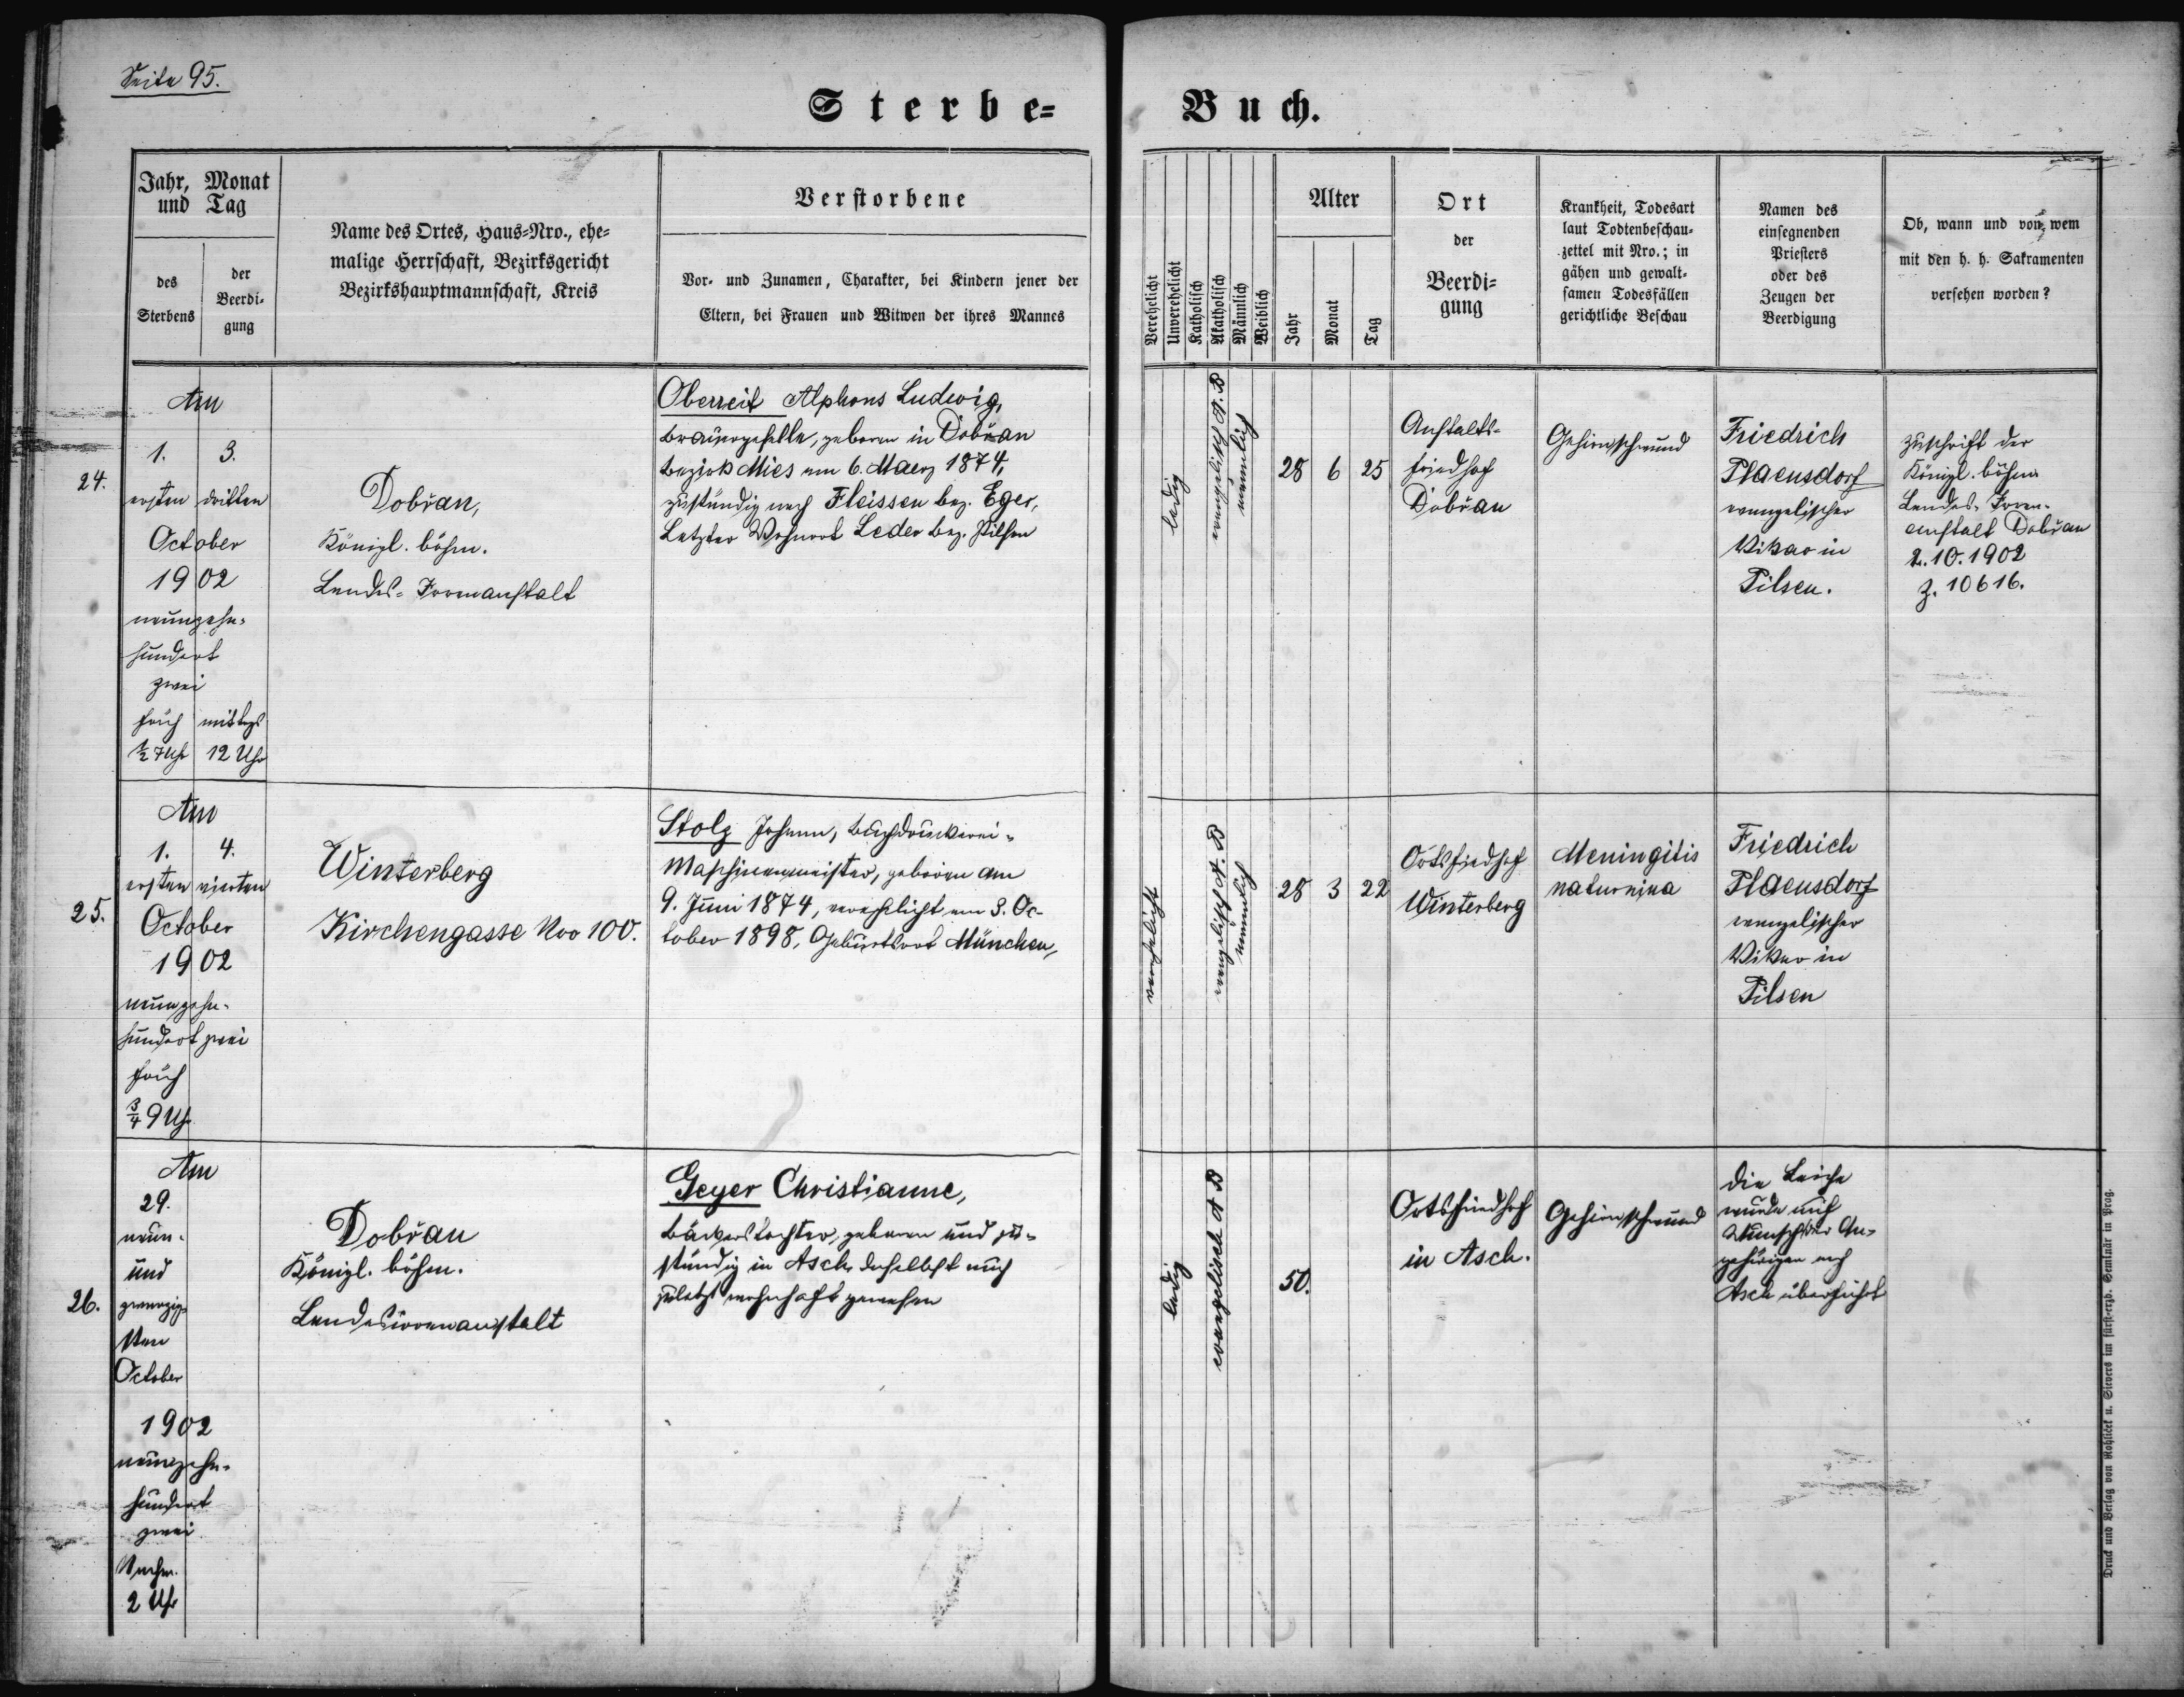 Seite 95.
Sterbe-
Buch.
Jahr, Monat
und Tag
des
Sterbens
der
Beerdi-
gung
Name des Ortes, Haus-Nro., ehe-
malige Herrschaft, Bezirksgericht
Bezirkshauptmannschaft, Kreis
Verstorbene
Vor- und Zunamen, Charakter, bei Kindern jener der
Eltern, bei Frauen und Witwen der ihres Mannes
Verehelicht
Unverehelicht
Katholisch
Akatholisch
Männlich
Weiblich
Alter
Jahr
Monat
Tag
Ort
der
Beerdi-
gung
Krankheit, Todesart
laut Todtenbeschau-
zettel mit Nro.; in
gähen und gewalt-
samen Todesfällen
gerichtliche Beschau
Namen des
einsegnenden
Priesters
oder des
Zeugen der
Beerdigung
Ob, wann und von wem
mit den h. h. Sakramenten
versehen worden?
24.
Am
1. 3.
ersten dritten
October
1902
neunzehn-
hundert
zwei
früh mittags
½ 7 Uhr 12 Uhr
Dobřan,
Königl. böhm.
Landes-Irrenanstalt
Oberreit Alphons Ludwig,
Brauergeselle, geboren in Dobřan
Bezirk Mies am 6. Maerz 1874,
zuständig nach Fleissen bez. Eger,
Letzter Wohnort Leder bez. Pilsen
ledig
evangelisch A. B
männlich
28 6 25
Anstalts-
friedhof
Dobřan
Gehirnschwund
Friedrich
Plaensdorf
evangelischer
Vikar in
Pilsen.
Zuschrift der
Königl. böhm
Landes-Irren-
anstalt Dobřan
2.10.1902
Z. 10616.
25.
Am
1. 4.
ersten vierten
October
1902
neunzehn-
hundert zwei
früh
¾ 9 Uhr
Winterberg
Kirchengasse Nro 100.
Stolz Johann, Buchdruckerei-
Maschinenmeister, geboren am
9. Juni 1874, verehelicht am 3. Oc-
tober 1898, Geburtsort München,
verehelicht
evangelisch A. B
männlich
28 3 22
Ortsfriedhof
Winterberg
Meningitis
Friedrich
Plaensdorf
evangelischer
Vikar in
Pilsen
26.
Am
29.
neun-
und
zwanzig-
sten
October
1902
neunzehn-
hundert
zwei
Nachm.
2 Uhr
Dobřan
Königl. böhm.
Landesirrenanstalt
Geyer Christianne,
Bäckerstochter, geboren und zu-
ständig in Asch, daselbst auch
zuletzt wohnhaft gewesen
ledig
evangelisch A B
50.
Ortsfriedhof
in Asch.
Gehirnschwund
Die Leiche
wurde auf
Wunsch der An-
gehörigen nach
Asch überführt
Druck und Verlag von Rohlicek u. Sievers im fürst-erzb. Seminär in Prag.